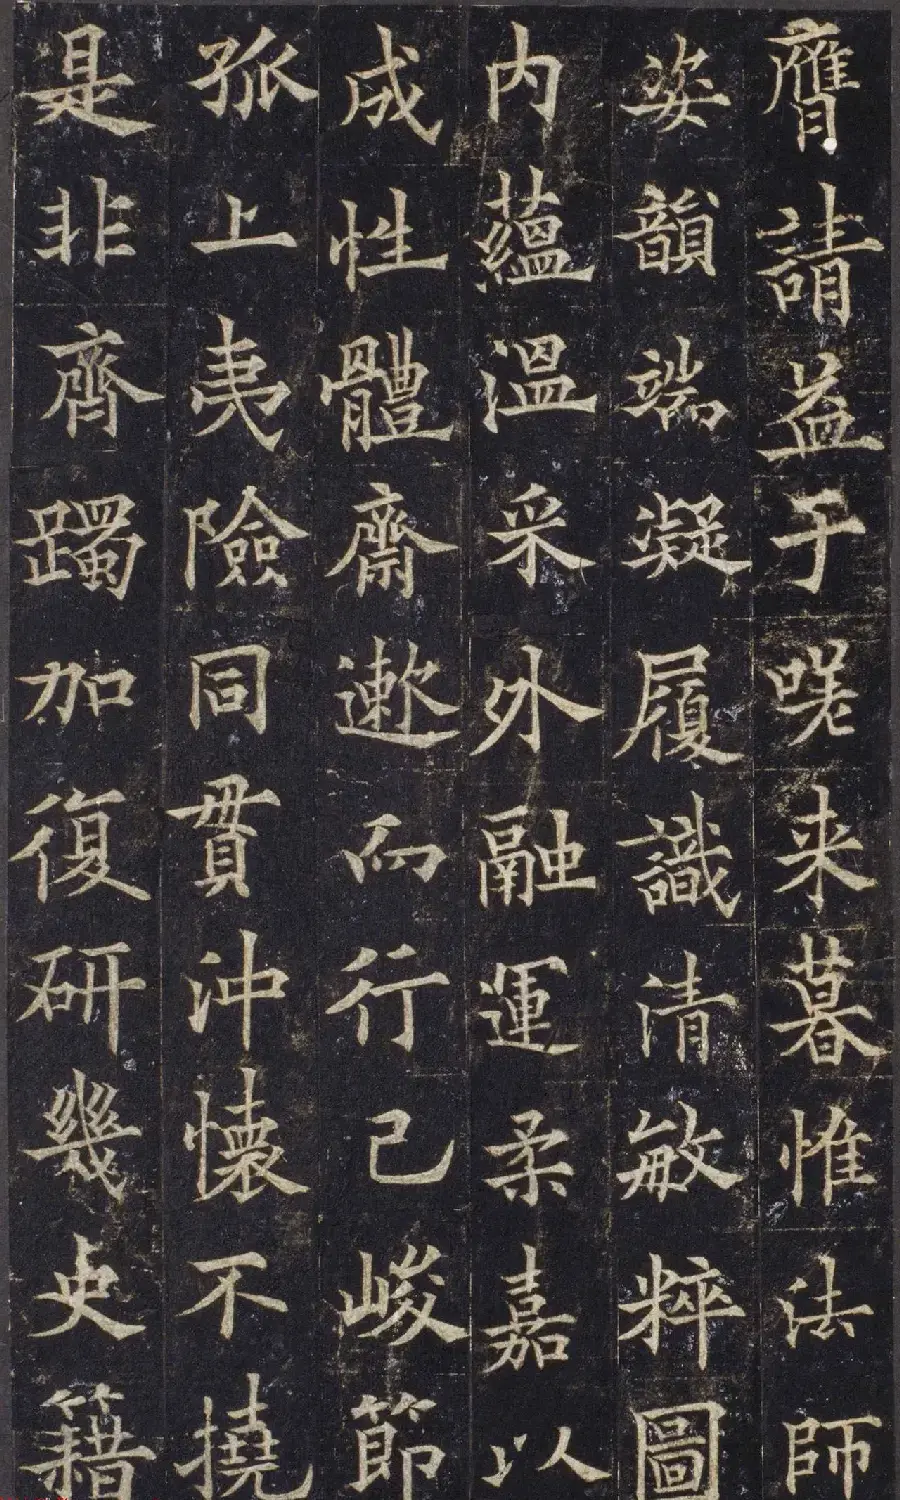 膺請益于唉来暮惟法師
姿韻端凝履識清敏粹圖
内蘊温采外融運柔嘉以
成性體齋遬而行己峻節
孤上夷險同貫沖懷不撓
是非齊躅加復研幾史籍